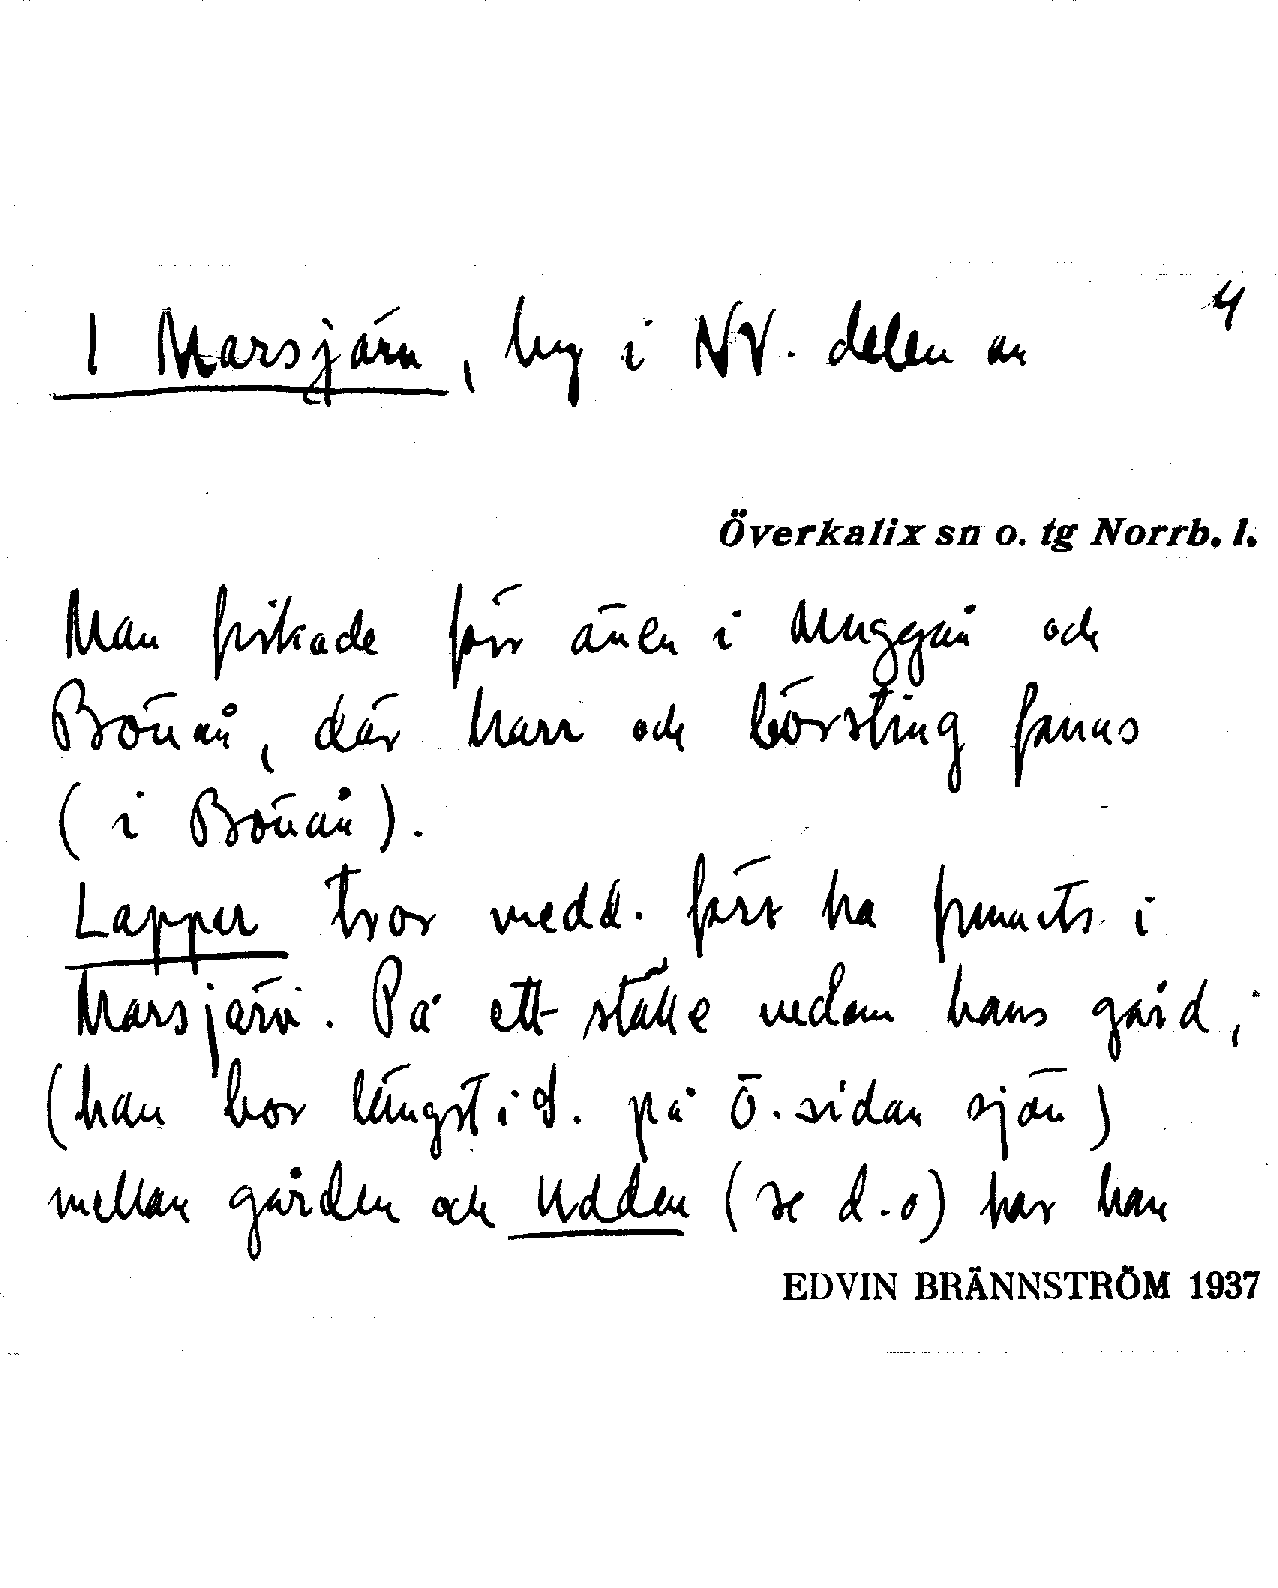 4
1 Marsjärv, by i NV. delen av
Överkalix sn o. tg Norrb. l.
Man fiskade förr även i Muggån och
Bönån, där harr och börsting fanns
(i Bönån).
Lapper tror medd. förr ha funnits i
Marsjärv. På ett ställe nedom hans gård,
(han bor längst i S. på Ö. sidan sjön)
mellan gården och Udden (se d.o) har han
EDVIN BRÄNNSTRÖM 1937